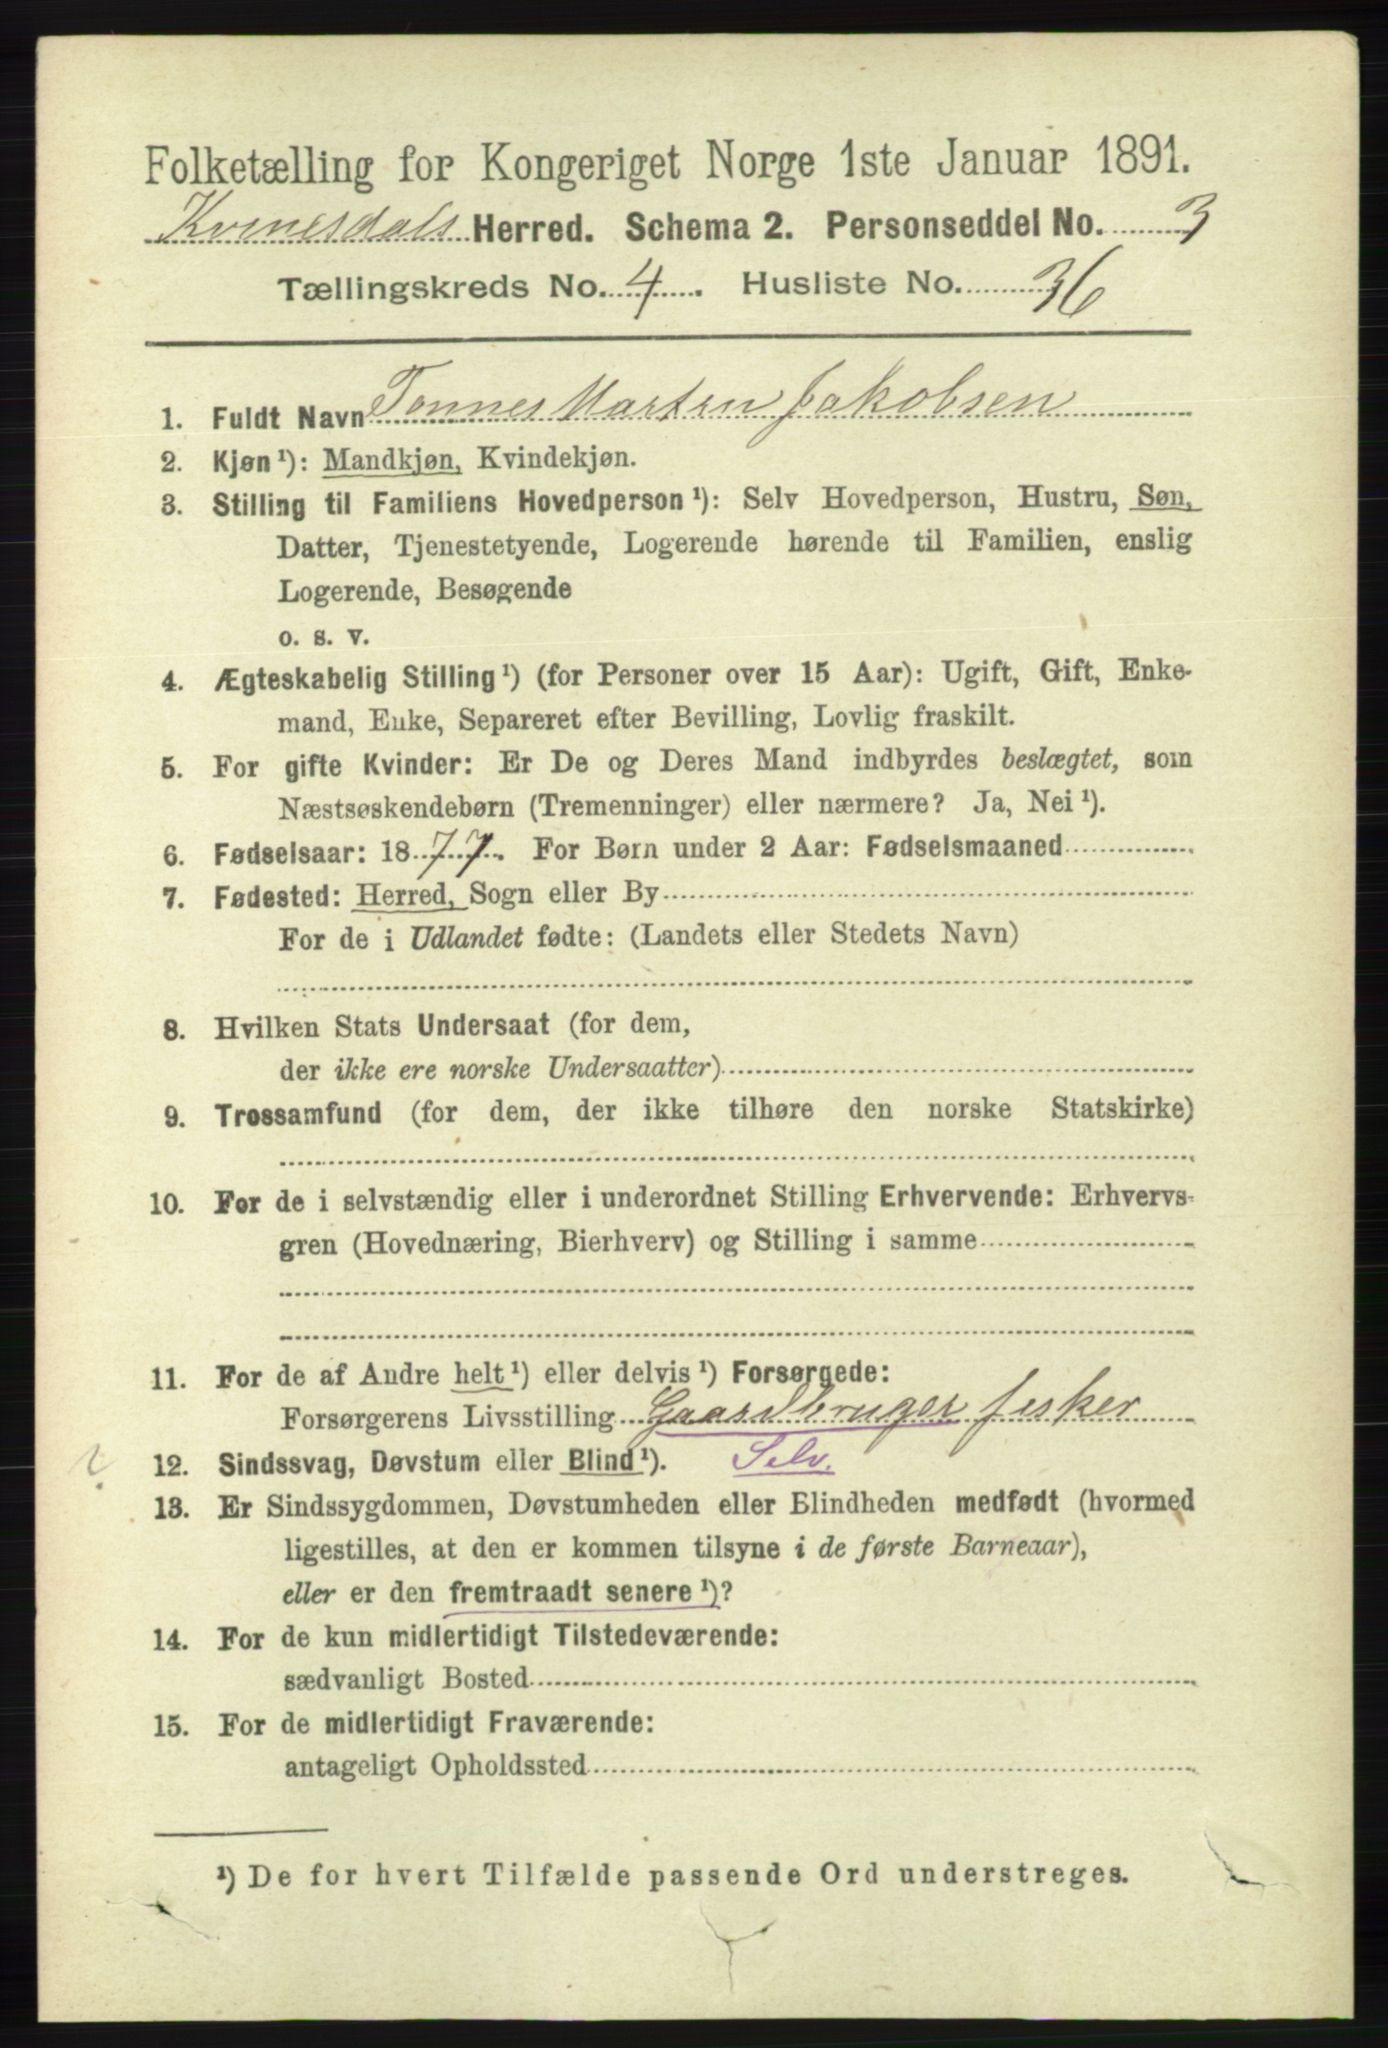 Folketælling for Kongeriget Norge 1ste Januar 1891.
Kvinesdals Herred. Schema 2. Personseddel No. 3
Tællingskreds No. 4. Husliste No. 36
1. Fuldt Navn Tønnes Martin Jakobsen
2. Kjøn ¹): Mandkjøn, Kvindekjøn.
3. Stilling til Familiens Hovedperson ¹): Selv Hovedperson, Hustru, Søn,
Datter, Tjenestetyende, Logerende hørende til Familien, enslig
Logerende, Besøgende
o. s. v.
4. Ægteskabelig Stilling ¹) (for Personer over 15 Aar): Ugift, Gift, Enke-
mand, Enke, Separeret efter Bevilling, Lovlig fraskilt.
5. For gifte Kvinder: Er De og Deres Mand indbyrdes beslægtet, som
Næstsøskendebørn (Tremenninger) eller nærmere? Ja, Nei ¹).
6. Fødselsaar: 1877. For Børn under 2 Aar: Fødselsmaaned
7. Fødested: Herred, Sogn eller By
For de i Udlandet fødte: (Landets eller Stedets Navn)
8. Hvilken Stats Undersaat (for dem,
der ikke ere norske Undersaatter)
9. Trossamfund (for dem, der ikke tilhøre den norske Statskirke)
10. For de i selvstændig eller i underordnet Stilling Erhvervende: Erhvervs-
gren (Hovednæring, Bierhverv) og Stilling i samme
11. For de af Andre helt ¹) eller delvis ¹) Forsørgede:
Forsørgerens Livsstilling Gaardbruger fisker
? 12. Sindssvag, Døvstum eller Blind ¹). Selv.
13. Er Sindssygdommen, Døvstumheden eller Blindheden medfødt (hvormed
ligestilles, at den er kommen tilsyne i de første Barneaar),
eller er den fremtraadt senere ¹)?
14. For de kun midlertidigt Tilstedeværende:
sædvanligt Bosted
15. For de midlertidigt Fraværende:
antageligt Opholdssted
¹) De for hvert Tilfælde passende Ord understreges.